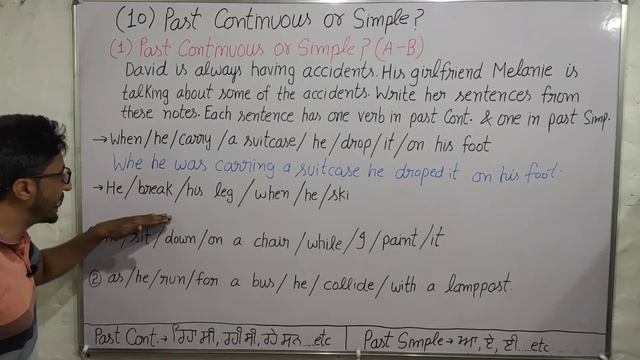 (10) Past Continuous or Simple?
(1) Past Continuous or Simple? (A-B)
David is always having accidents. His girlfriend Melanie is
talking about some of the accidents. Write her sentences from
these notes. Each sentence has one verb in past Cont. & one in past Simp.
→When/he/carry/a suitcase/he/drop/it/on his foot
Whe he was carring a suitcase he droped it on his foot.
→He/break/his leg/when/he/ski
/sit/down/on a chair/while/I/paint/it
② as/he/run/for a bus/he/collide/with a lamppost.
Past Cont.→ ਰਿਹਾ ਸੀ, ਰਹੀ ਸੀ, ਰਹੇ ਸਨ....etc
Past Simple→ਆ, ਏ, ਈ....etc.